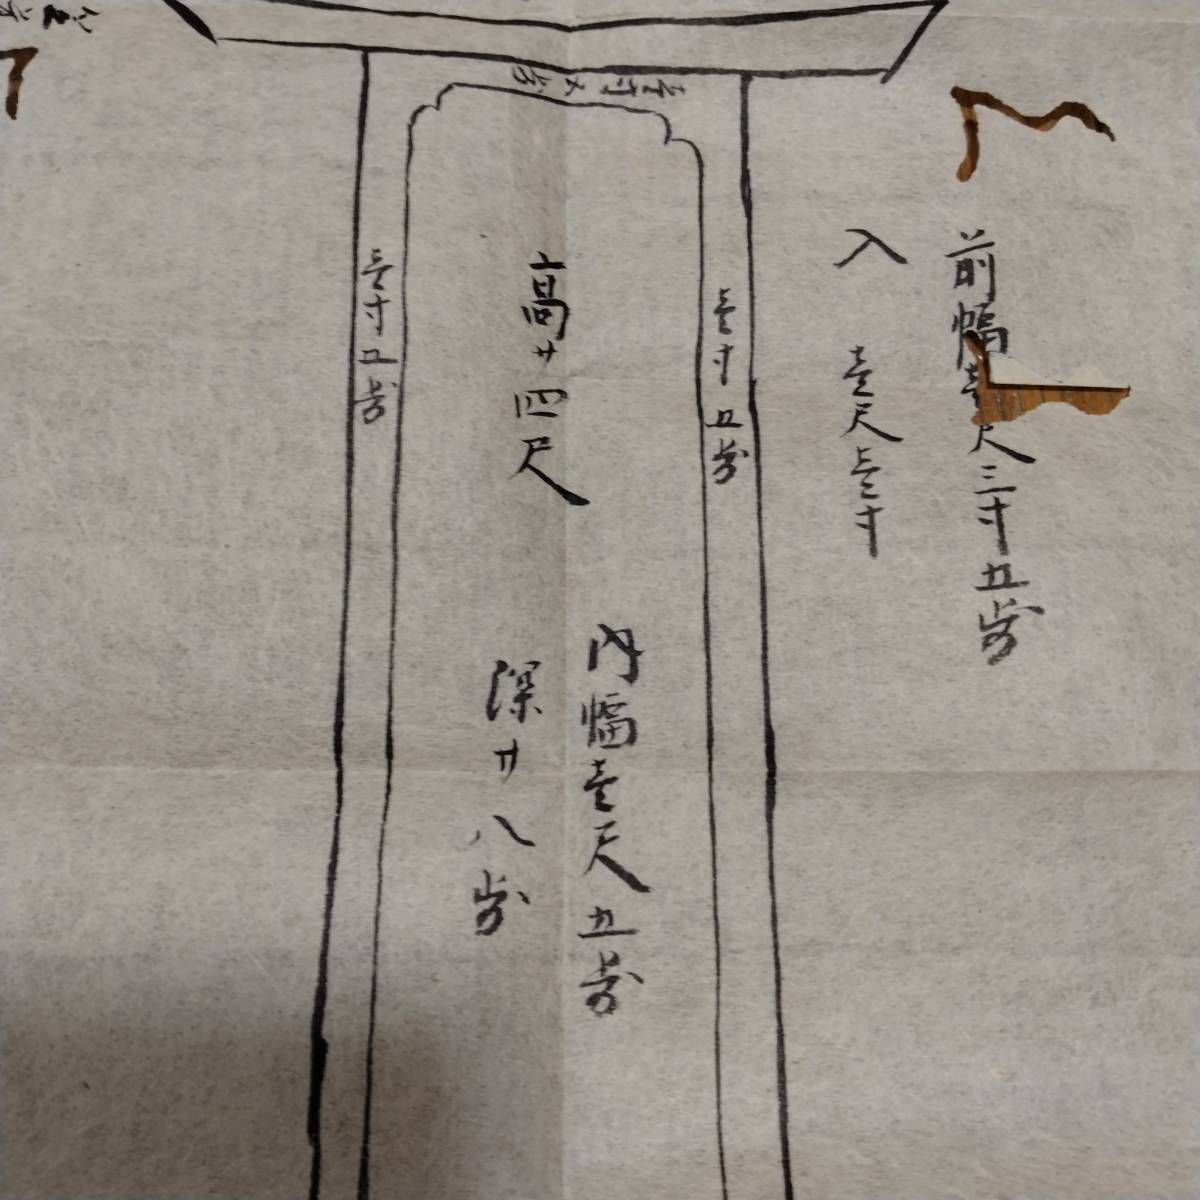 前幅壱尺三寸五歩
入　壱尺壱寸
壱寸五歩
壱寸五歩
高廿四尺
内幅壱尺五歩
深廿八歩
壱寸五歩